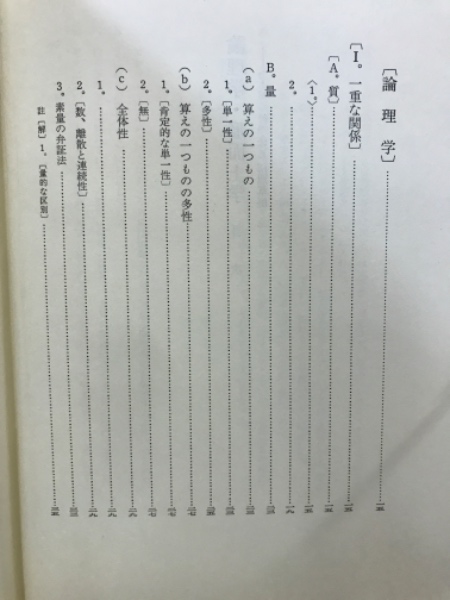 〔論理学〕……一五
〔Ⅰ。一重な関係〕……一五
〔A。質〕……一五
〈1。〉……一五
2。……一九
B。量……
(a) 算えの一つもの……
1。〔単一性〕……
2。〔多性〕……
(b) 算えの一つものの多性……二七
1。〔肯定的な単一性〕……二七
2。〔無〕……二七
(c) 全体性……二九
1。……二九
2。〔数、離散と連続性〕……
3。素量の弁証法……
註〔解〕1。〔量的な区別〕……